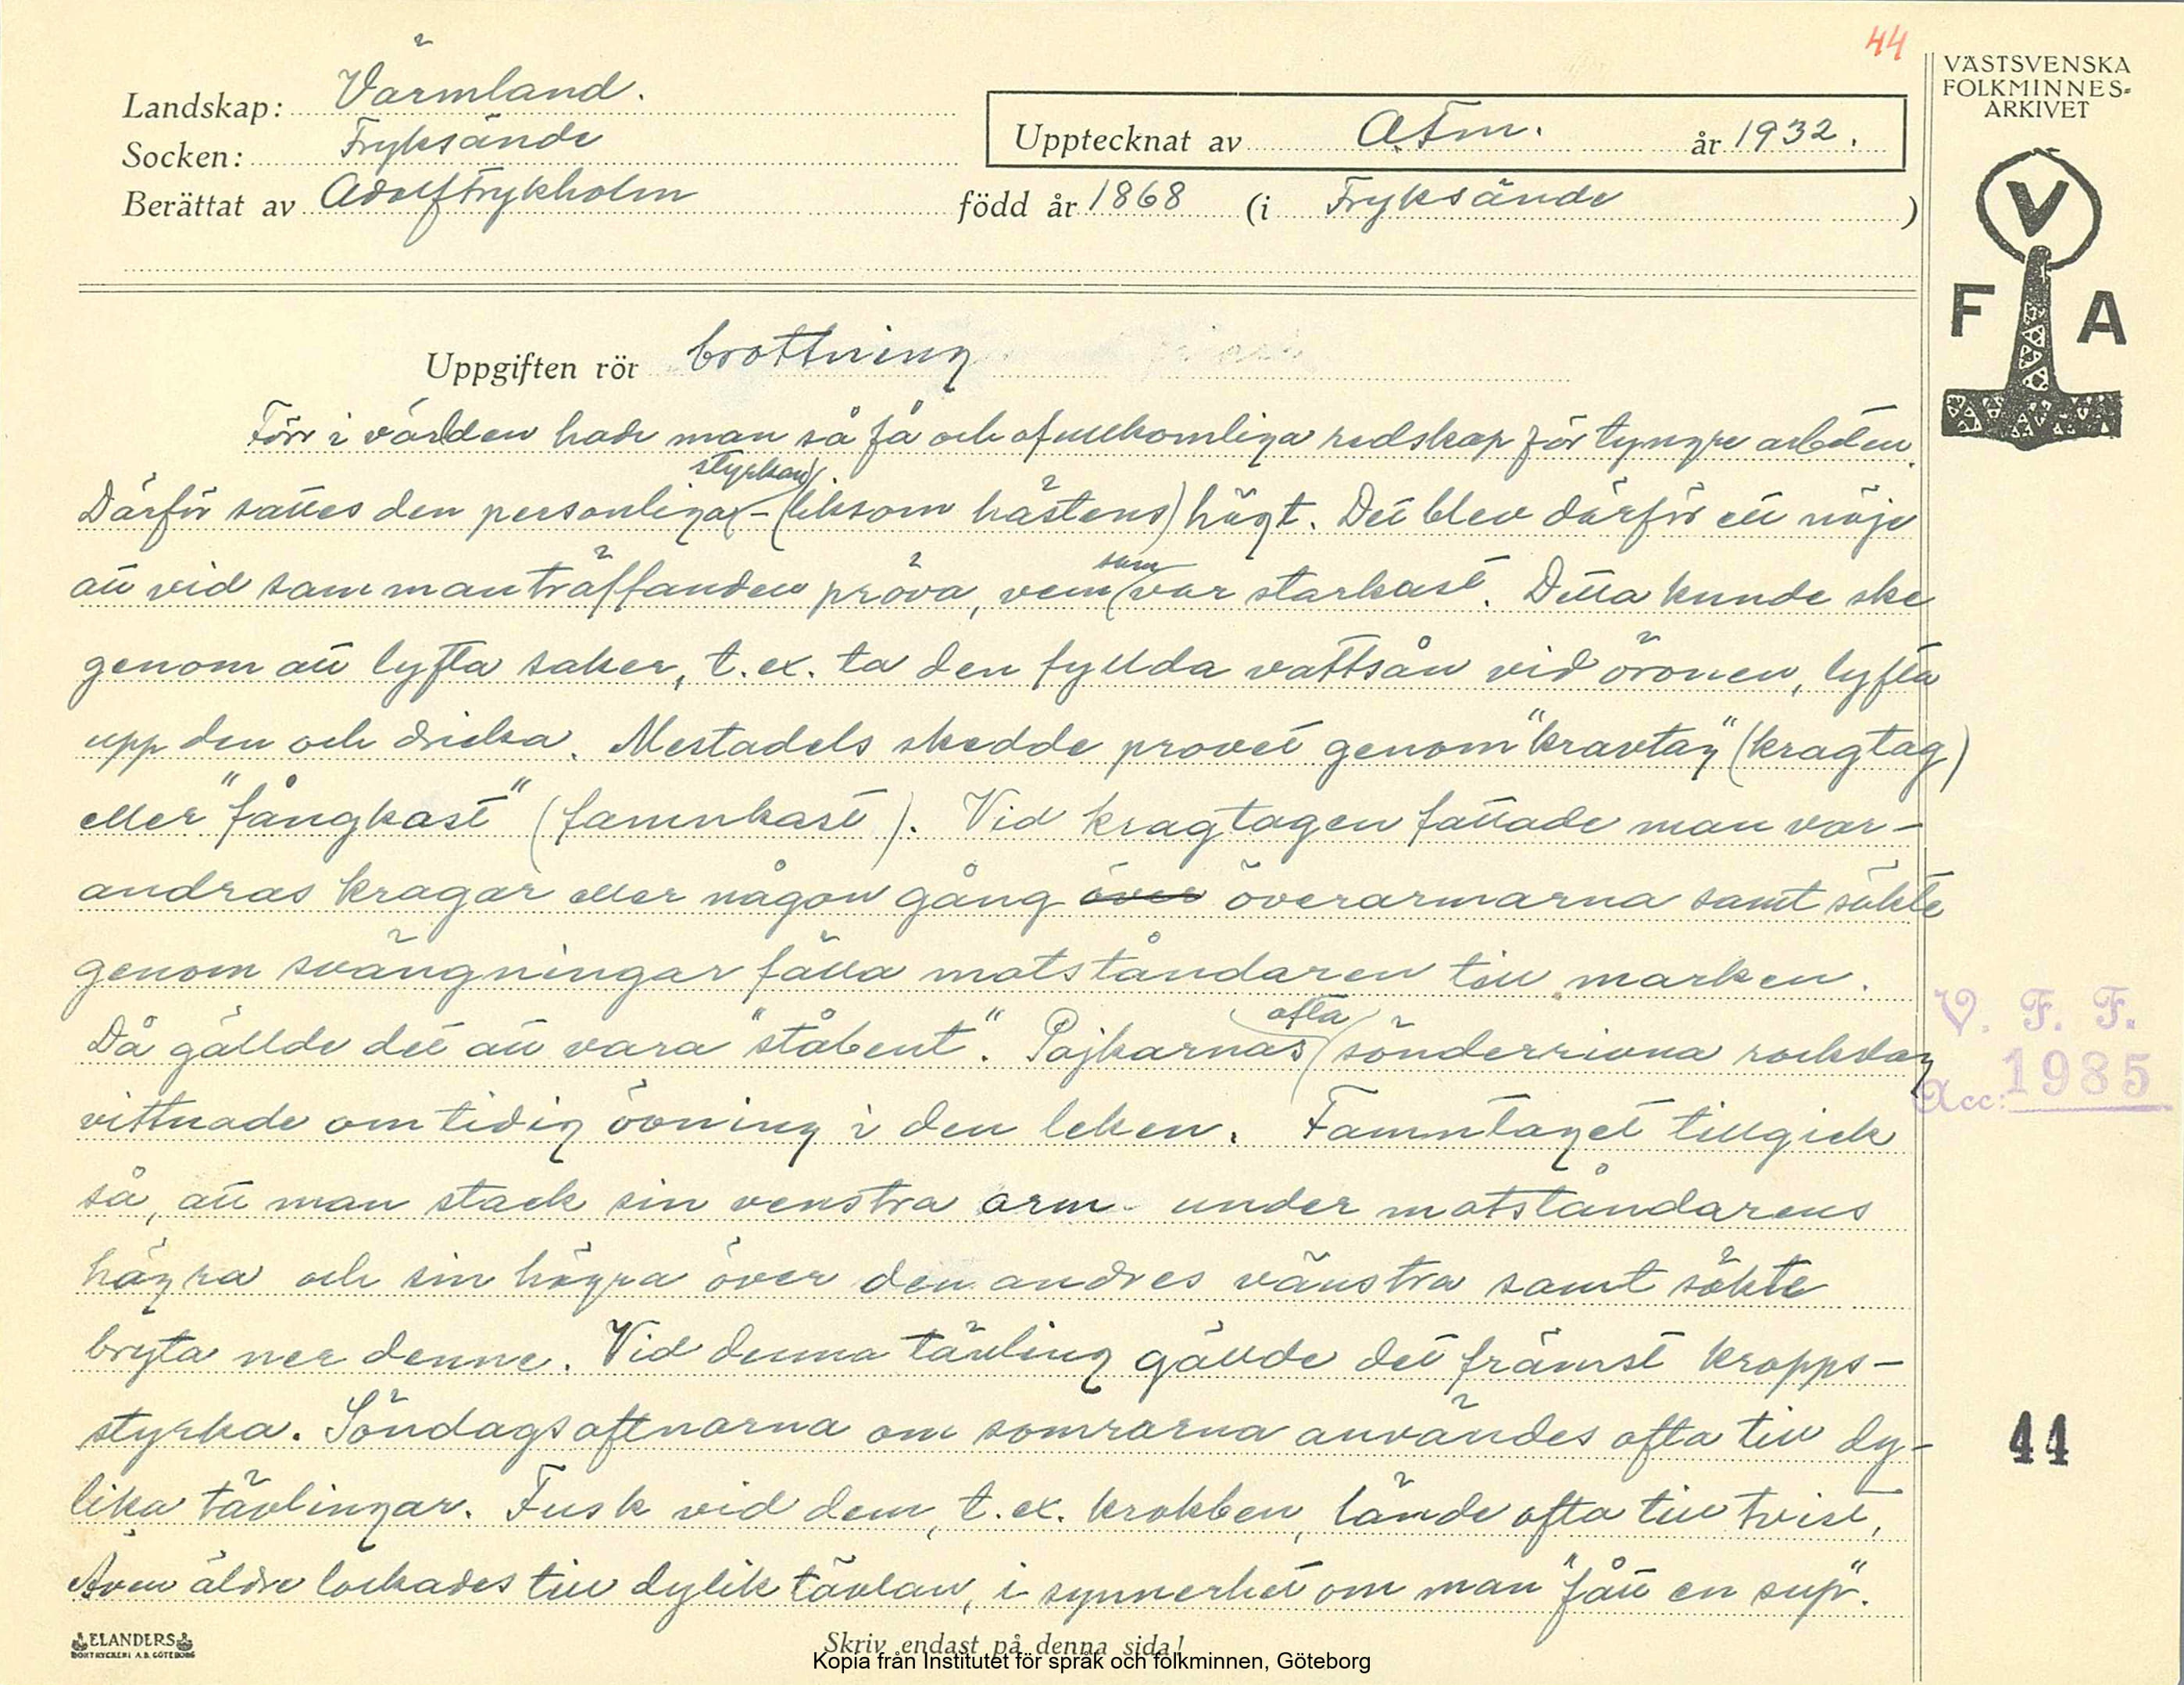 44
VÄSTSVENSKA
FOLKMINNES-
ARKIVET
Landskap: Värmland.
Socken: Fryksände
Upptecknat av år 1932.
Berättat av Adolf Frykholm född år 1868 (i Fryksände)
V
F A
Uppgiften rör brottning
Förr i världen hade man så få och ofullkomliga redskap för tyngre arbeten.
Därför sattes den personliga styrkan (liksom hästens) högt. Det blev därför ett nöje
att vid sammanträffanden pröva, vem som var starkast. Detta kunde ske
genom att lyfta saker, t.ex. ta den fyllda vattsån vid öronen, lyfta
upp den och dricka. Mestadels skedde provet genom "kravtag" (kragtag)
eller "fångkast" (famnkast). Vid kragtagen fattade man var-
andras kragar eller någon gång över överarmarna samt sökte
genom svängningar fälla motståndaren till marken.
Då gällde det att vara "ståbent". Pojkarnas ofta sönderrivna rockslag
vittnade om tidig övning i den leken. Famntaget tillgick
så, att man stack sin venstra arm under motståndarens
högra och sin högra över den andres vänstra samt sökte
bryta ner denne. Vid denna tävling gällde det främst kropps-
styrka. Söndagsaftnarna om somrarna användes ofta till dy-
lika tävlingar. Fusk vid dem, t.ex. krokben, lände ofta till tvist.
Även äldre lockades till dylik tävlan, i synnerhet om man "fått en sup".
V. F. F.
Acc: 1985
44
ELANDERS
BOKTRYCKERI A.B. GÖTEBORG
Skriv endast på denna sida!
Kopia från Institutet för språk och folkminnen, Göteborg